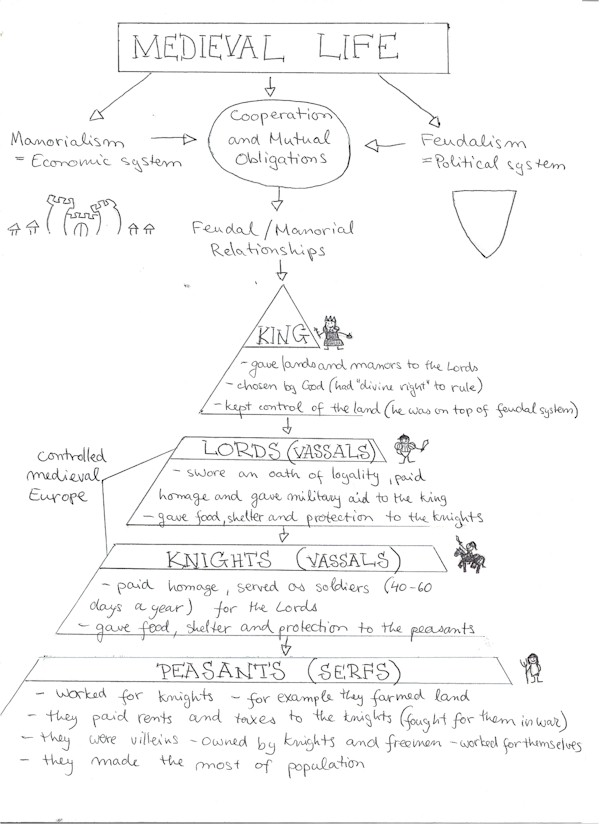 MEDIEVAL LIFE
Cooperation
and Mutual
Obligations
Manorialism
= Economic system
Feudalism
= Political system
Feudal / Manorial
Relationships
KING
- gave lands and manors to the Lords
- chosen by God (had "divine right" to rule)
- kept control of the land (he was on top of feudal system)
LORDS (VASSALS)
- swore an oath of loyality, paid
homage and gave military aid to the king
- gave food, shelter and protection to the knights
controlled
medieval
Europe
KNIGHTS (VASSALS)
- paid homage, served as soldiers (40-60
days a year) for the Lords
- gave food, shelter and protection to the peasants
PEASANTS (SERFS)
- worked for knights - for example they farmed land
- they paid rents and taxes to the knights (fought for them in war)
- they were villeins - owned by knights and freemen - worked for themselves
- they made the most of population